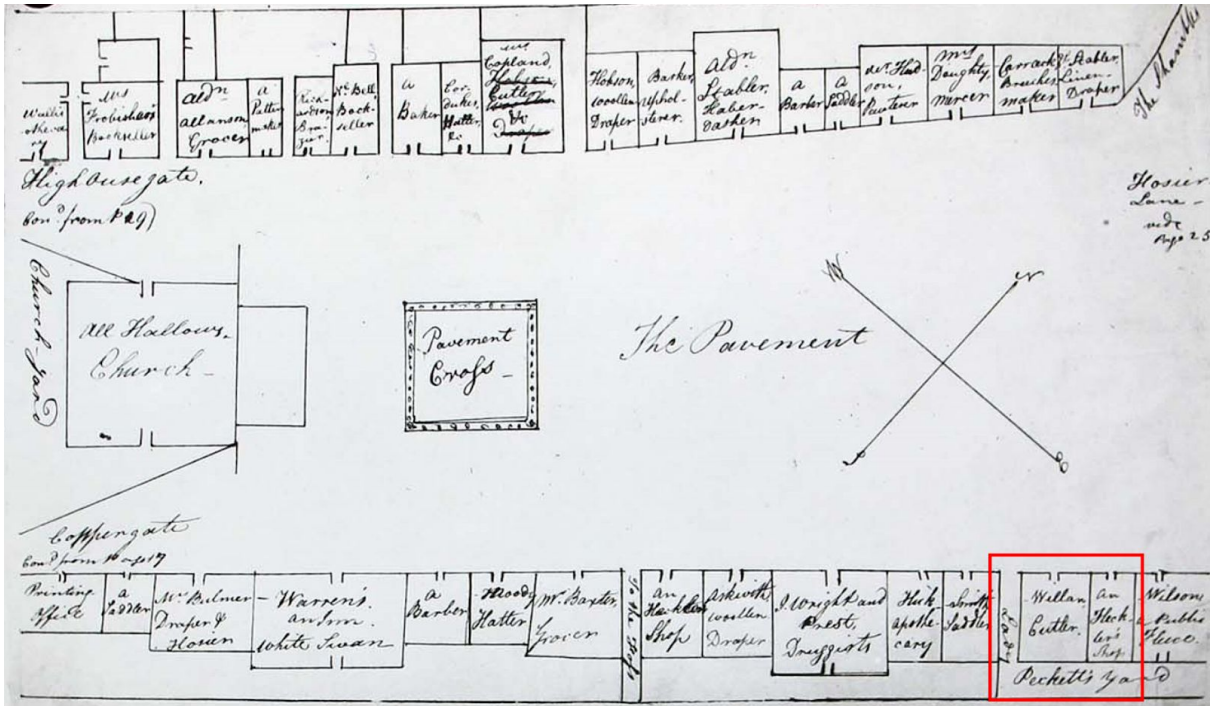 Wallis
Mrs
Frobisher's
Bookseller
Aldn
Allanson,
Grocer
a
Patten
maker
Rich-
ardson
Bra-
zier
Mr. Bell
Book-
seller
a
Baker
Cor-
duke,
Hatter,
&c
Mrs
Copland,
Cutler
Draper
Hobson,
woollen
Draper
Barker,
uphol-
sterer.
Aldn
Stabler,
Haber-
dasher
a
Barber
a
Saddler
Mr Hud-
son,
Pewterer
Mrs
Doughty,
mercer
Carrack
Breeches
maker
Stabler,
Linen-
Draper
The Shambles
High Ousegate.
Con.d from P 29)
Hosier
Lane -
vide
Page 25
Church-yard
All Hallows.
Church -
Pavement
Cross -
The Pavement
W
N
S
E
Coppergate
Con.d from Page 17
Printing
Office
a
Saddler
Mr. Bulmer
Draper &
Hosier
- Warren's.
an Inn.
White Swan
a
Barber
- Moody
Hatter
Mr. Baxter,
Grocer
To the
an
Heckler
Shop
Askwith
woollen
Draper
J. Wright and
Prest,
Druggists
Heck
apothe-
cary
Smith
Saddler
Lady
- Willan,
Cutler.
an
Heck-
ler's
Shop
Wilson
a Public
Fleece.
Peckett's Yard